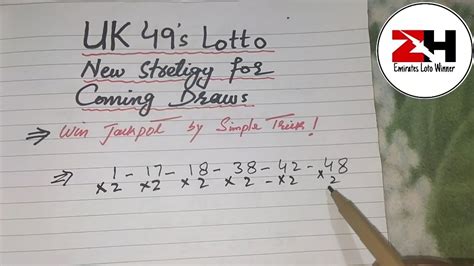 UK 49's Lotto
New Streligy for
Coming Draws
⇒ Win Jackpot by Simple Trick!
⇒ 1 - 17 - 18 - 38 - 42 - 48
×2 ×2 ×2 ×2 - ×2 ×2
ZH
Emirates Loto Winner